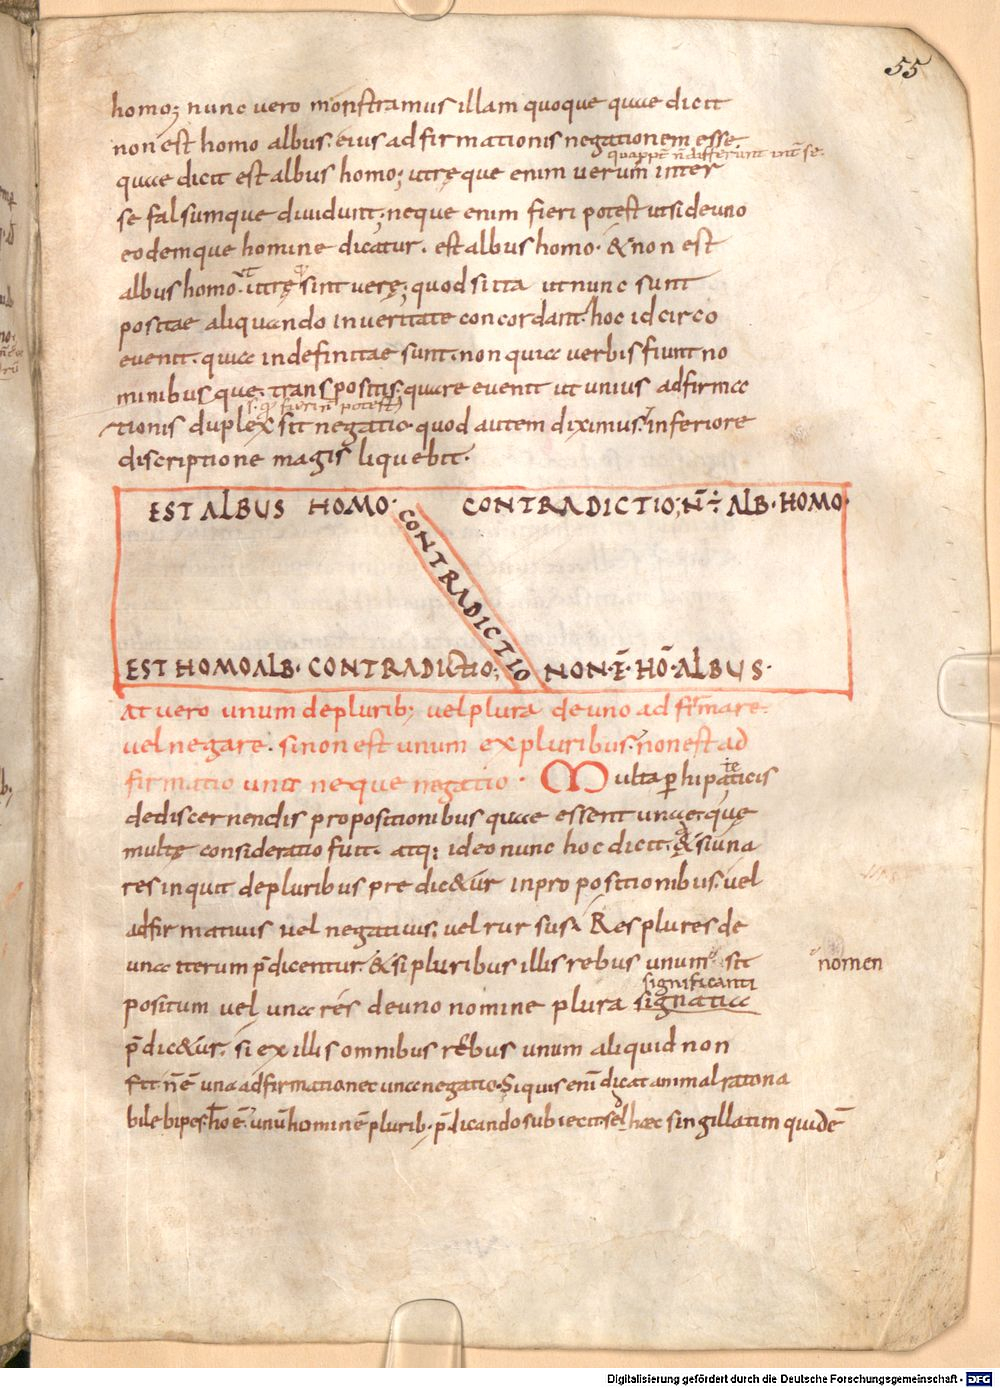 55
homo; nunc vero monstramus illam quoque quae dicit
non est homo albus. eius adfirmationis negationem esse.
quapp̄t n̄ differunt int̄ se.
quae dicit est albus homo; utręque enim uerum inter
se falsumque diuidunt. neque enim fieri potest ut si de uno
eodemque homine dicatur. est albus homo. & non est
albus homo. utręq; sint uerę; quod si ita ut nunc sunt
positae aliquando in ueritate concordant. hoc idcirco
euenit. quia indefinitae sunt. non quia uerbis fiunt no
minibusque. transpositis; quare euenit ut unius adfirma
s. q fieri n̄ potest
tionis duplex sit negatio. quod autem diximus. inferiore
discriptione magis liquebit.
EST ALBUS HOMO. CONTRADICTIO; N̄ ÷ ALB. HOMO.
CONTRADICTIO
EST HOMO ALB. CONTRADICTIO; NON. Ē. HŌ. ALBUS.
At vero unum de plurib; vel plura de uno adfirmare.
vel negare. si non est unum ex pluribus. non est ad
firmatio una neque negatio. Multa p̱hipaticis
te
de discernendis propositionibus quae essent unae. quę
multę consideratio fuit. atq; ideo nunc hoc dicit. & si una
res inquit de pluribus predic&ur in propositionibus. uel
adfirmatiuis uel negatiuis. uel rursus. Res plures de
una iterum p̄dicentur. & si pluribus illis rebus unum sit
nomen
significanti
positum uel una res de uno nomine plura signatia
p̄dic&ur. si ex illis omnibus rebus unum aliquid non
fit. n̄ ē una adfirmatio nec una negatio. Si quis enī dicat animal rationa
bile bipes. hō ē. unū hominē plurib; p̄dicando subiecit. sed haec singillatim quidē
Digitalisierung gefördert durch die Deutsche Forschungsgemeinschaft - DFG